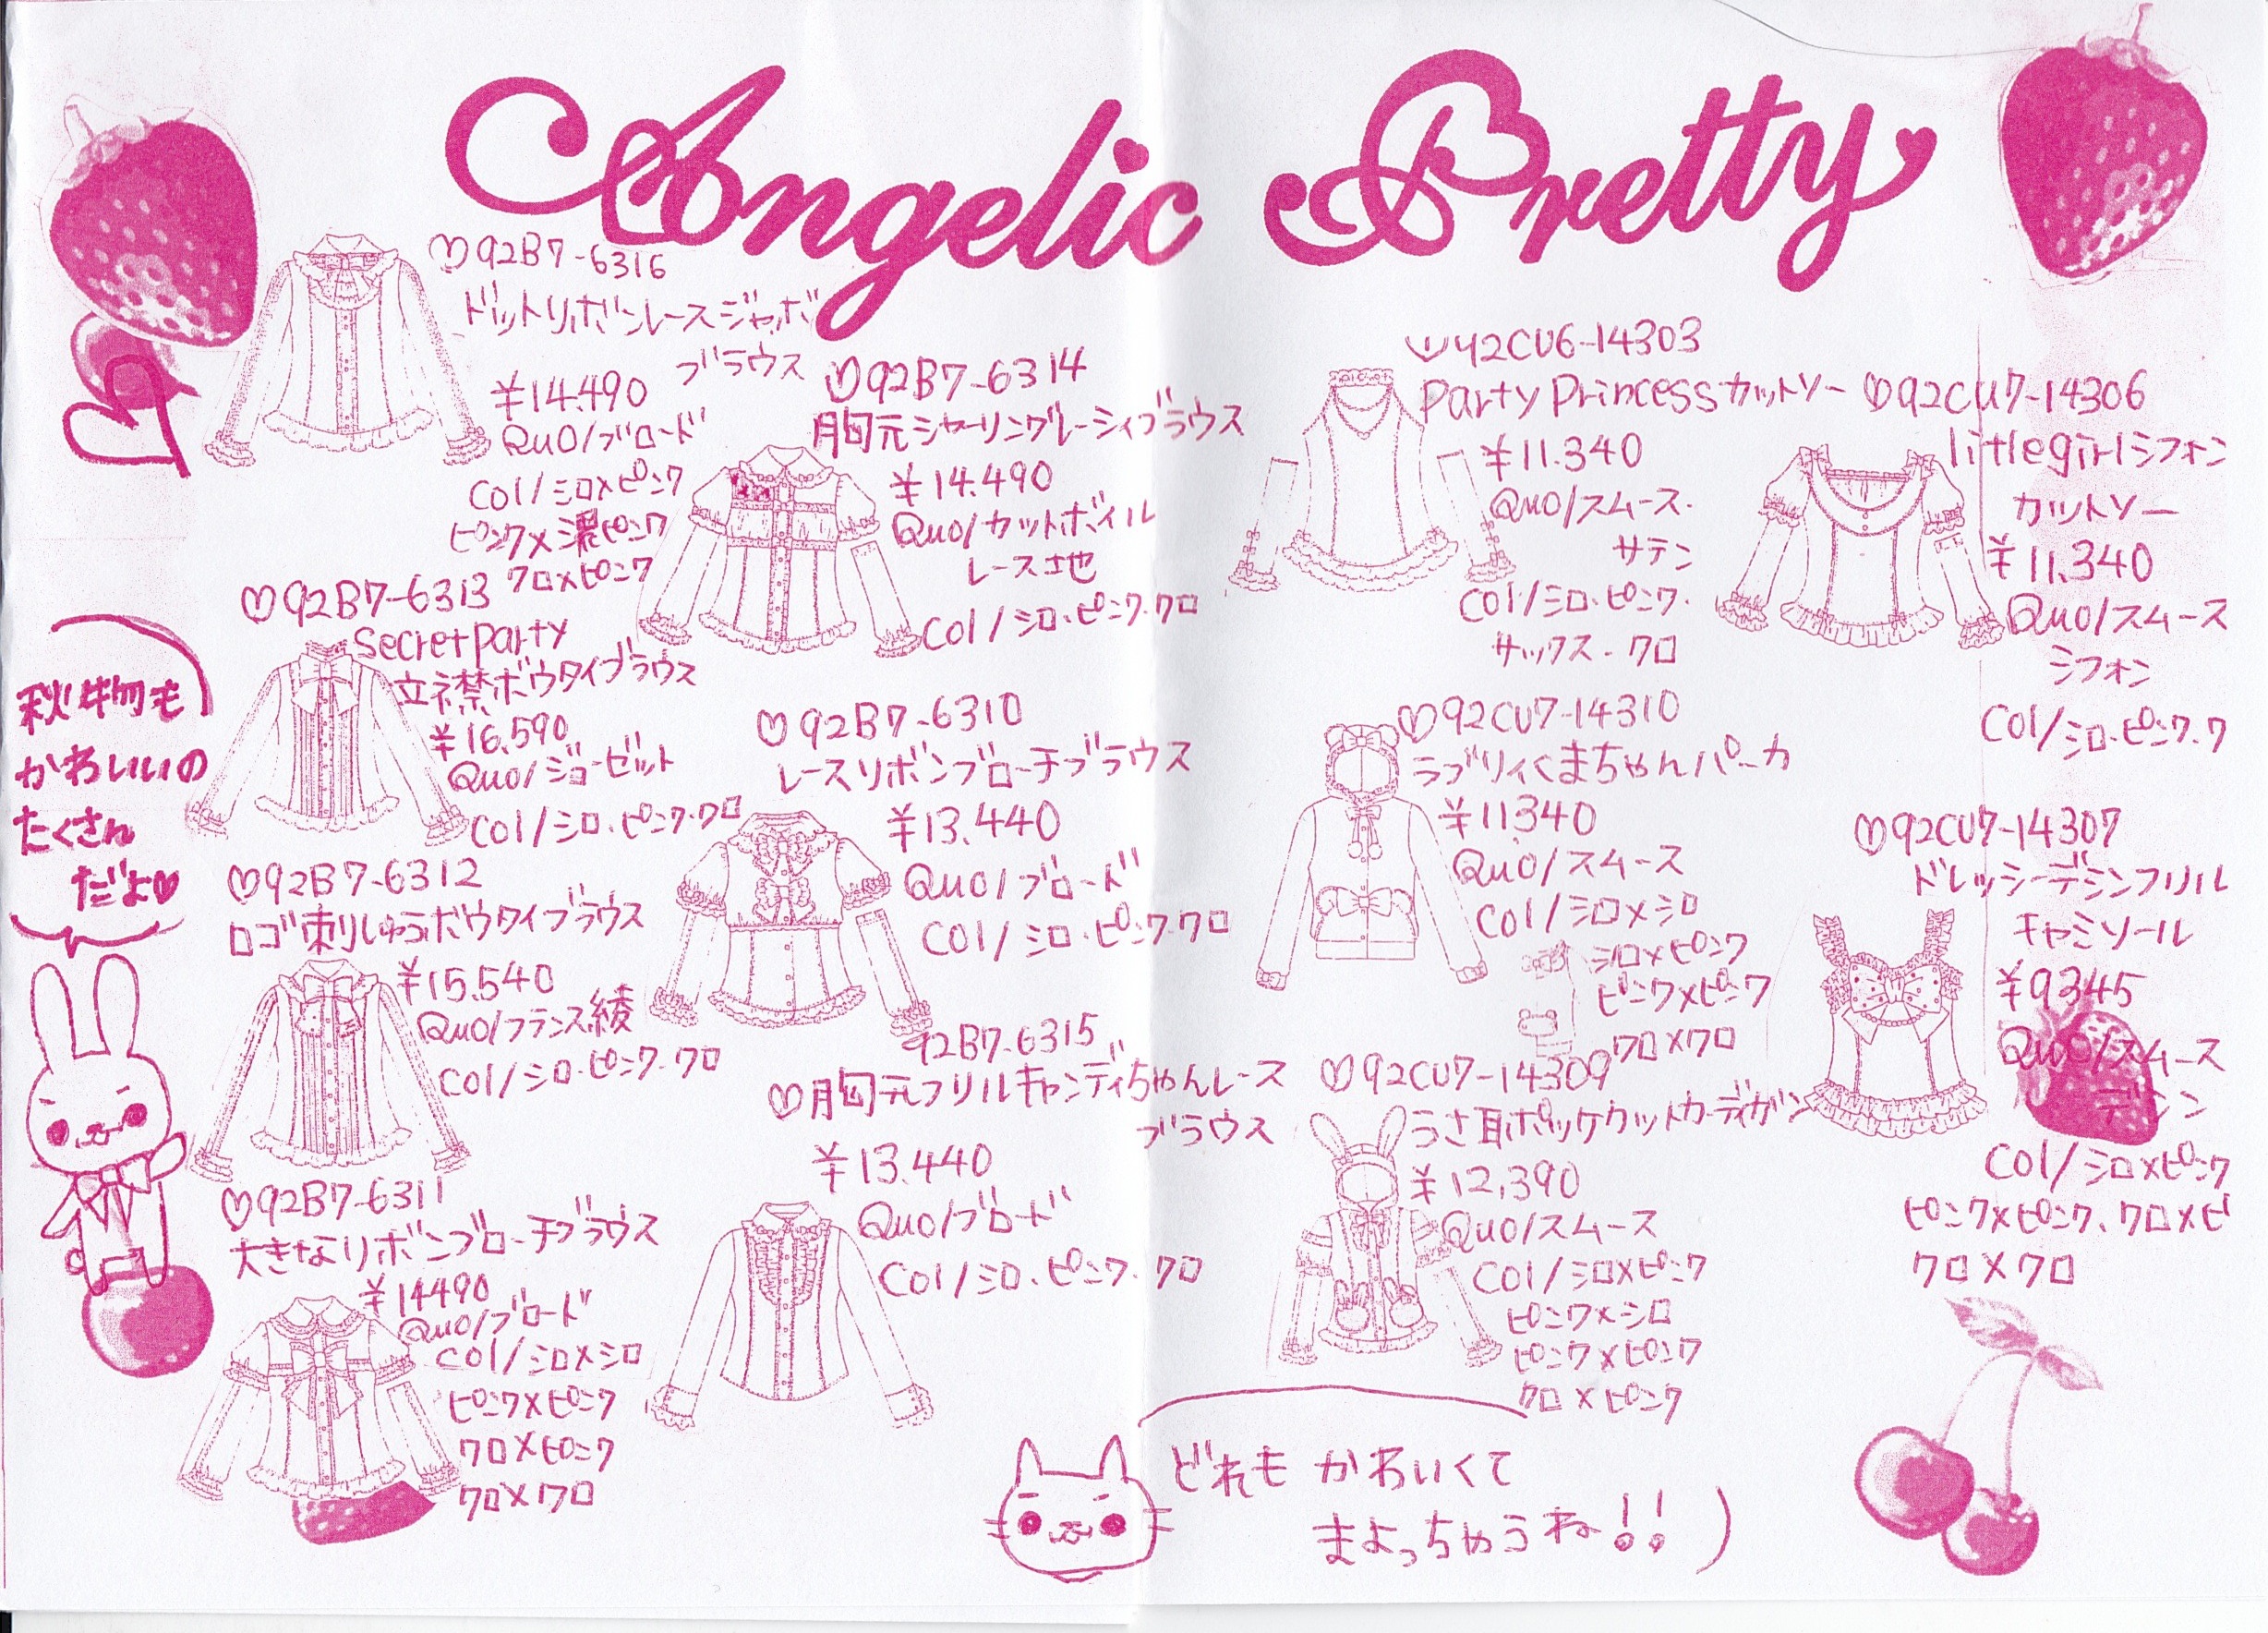 Angelic Pretty
♡92B7-6316
ドットリボンレースジャボ
ブラウス
¥14.490
Quo/ブロード
Col/シロ×ピンク
ピンク×濃ピンク
クロ×ピンク
♡92B7-6313
Secret party
立ネ禁ボウタイブラウス
¥16.590
Quo/ジョーゼット
Col/シロ・ピンク・クロ
♡92B7-6312
ロゴ刺しゅうボウタイブラウス
¥15.540
Quo/フランス綾
Col/シロ・ピンク・クロ
♡92B7-6311
大きなリボンブローチブラウス
¥14490
Quo/ブロード
Col/シロ×シロ
ピンク×ピンク
クロ×ピンク
クロ×クロ
秋物も
かわいいの
たくさん
だよ♡
♡92B7-6314
胸元シャーリングレーシィブラウス
¥14.490
Quo/カットボイル
レース地
Col/シロ・ピンク・クロ
♡92B7-6310
レースリボンブローチブラウス
¥13.440
Quo/ブロード
Col/シロ・ピンク・クロ
92B7-6315
♡胸元フリルキャンディちゃんレース
ブラウス
¥13.440
Quo/ブロード
Col/シロ・ピンク・クロ
♡92CU6-14303
Party Princessカットソー
¥11.340
Quo/スムース・
サテン
Col/シロ・ピンク・
サックス・クロ
♡92CU7-14310
ラブリィくまちゃんパーカ
¥11340
Quo/スムース
Col/シロ×シロ
シロ×ピンク
ピンク×ピンク
クロ×クロ
♡92CU7-14309
うさ耳ポッケカットカーディガン
¥12,390
Quo/スムース
Col/シロ×ピンク
ピンク×シロ
ピンク×ピンク
クロ×ピンク
♡92CU7-14306
little girlシフォン
カットソー
¥11.340
Quo/スムース
シフォン
Col/シロ・ピンク・ク
♡92CU7-14307
ドレッシーデシンフリル
キャミソール
¥9345
Quo/スムース
デシン
Col/シロ×ピンク
ピンク×ピンク、クロ×ピ
クロ×クロ
どれも かわいくて
まよっちゃうね!!